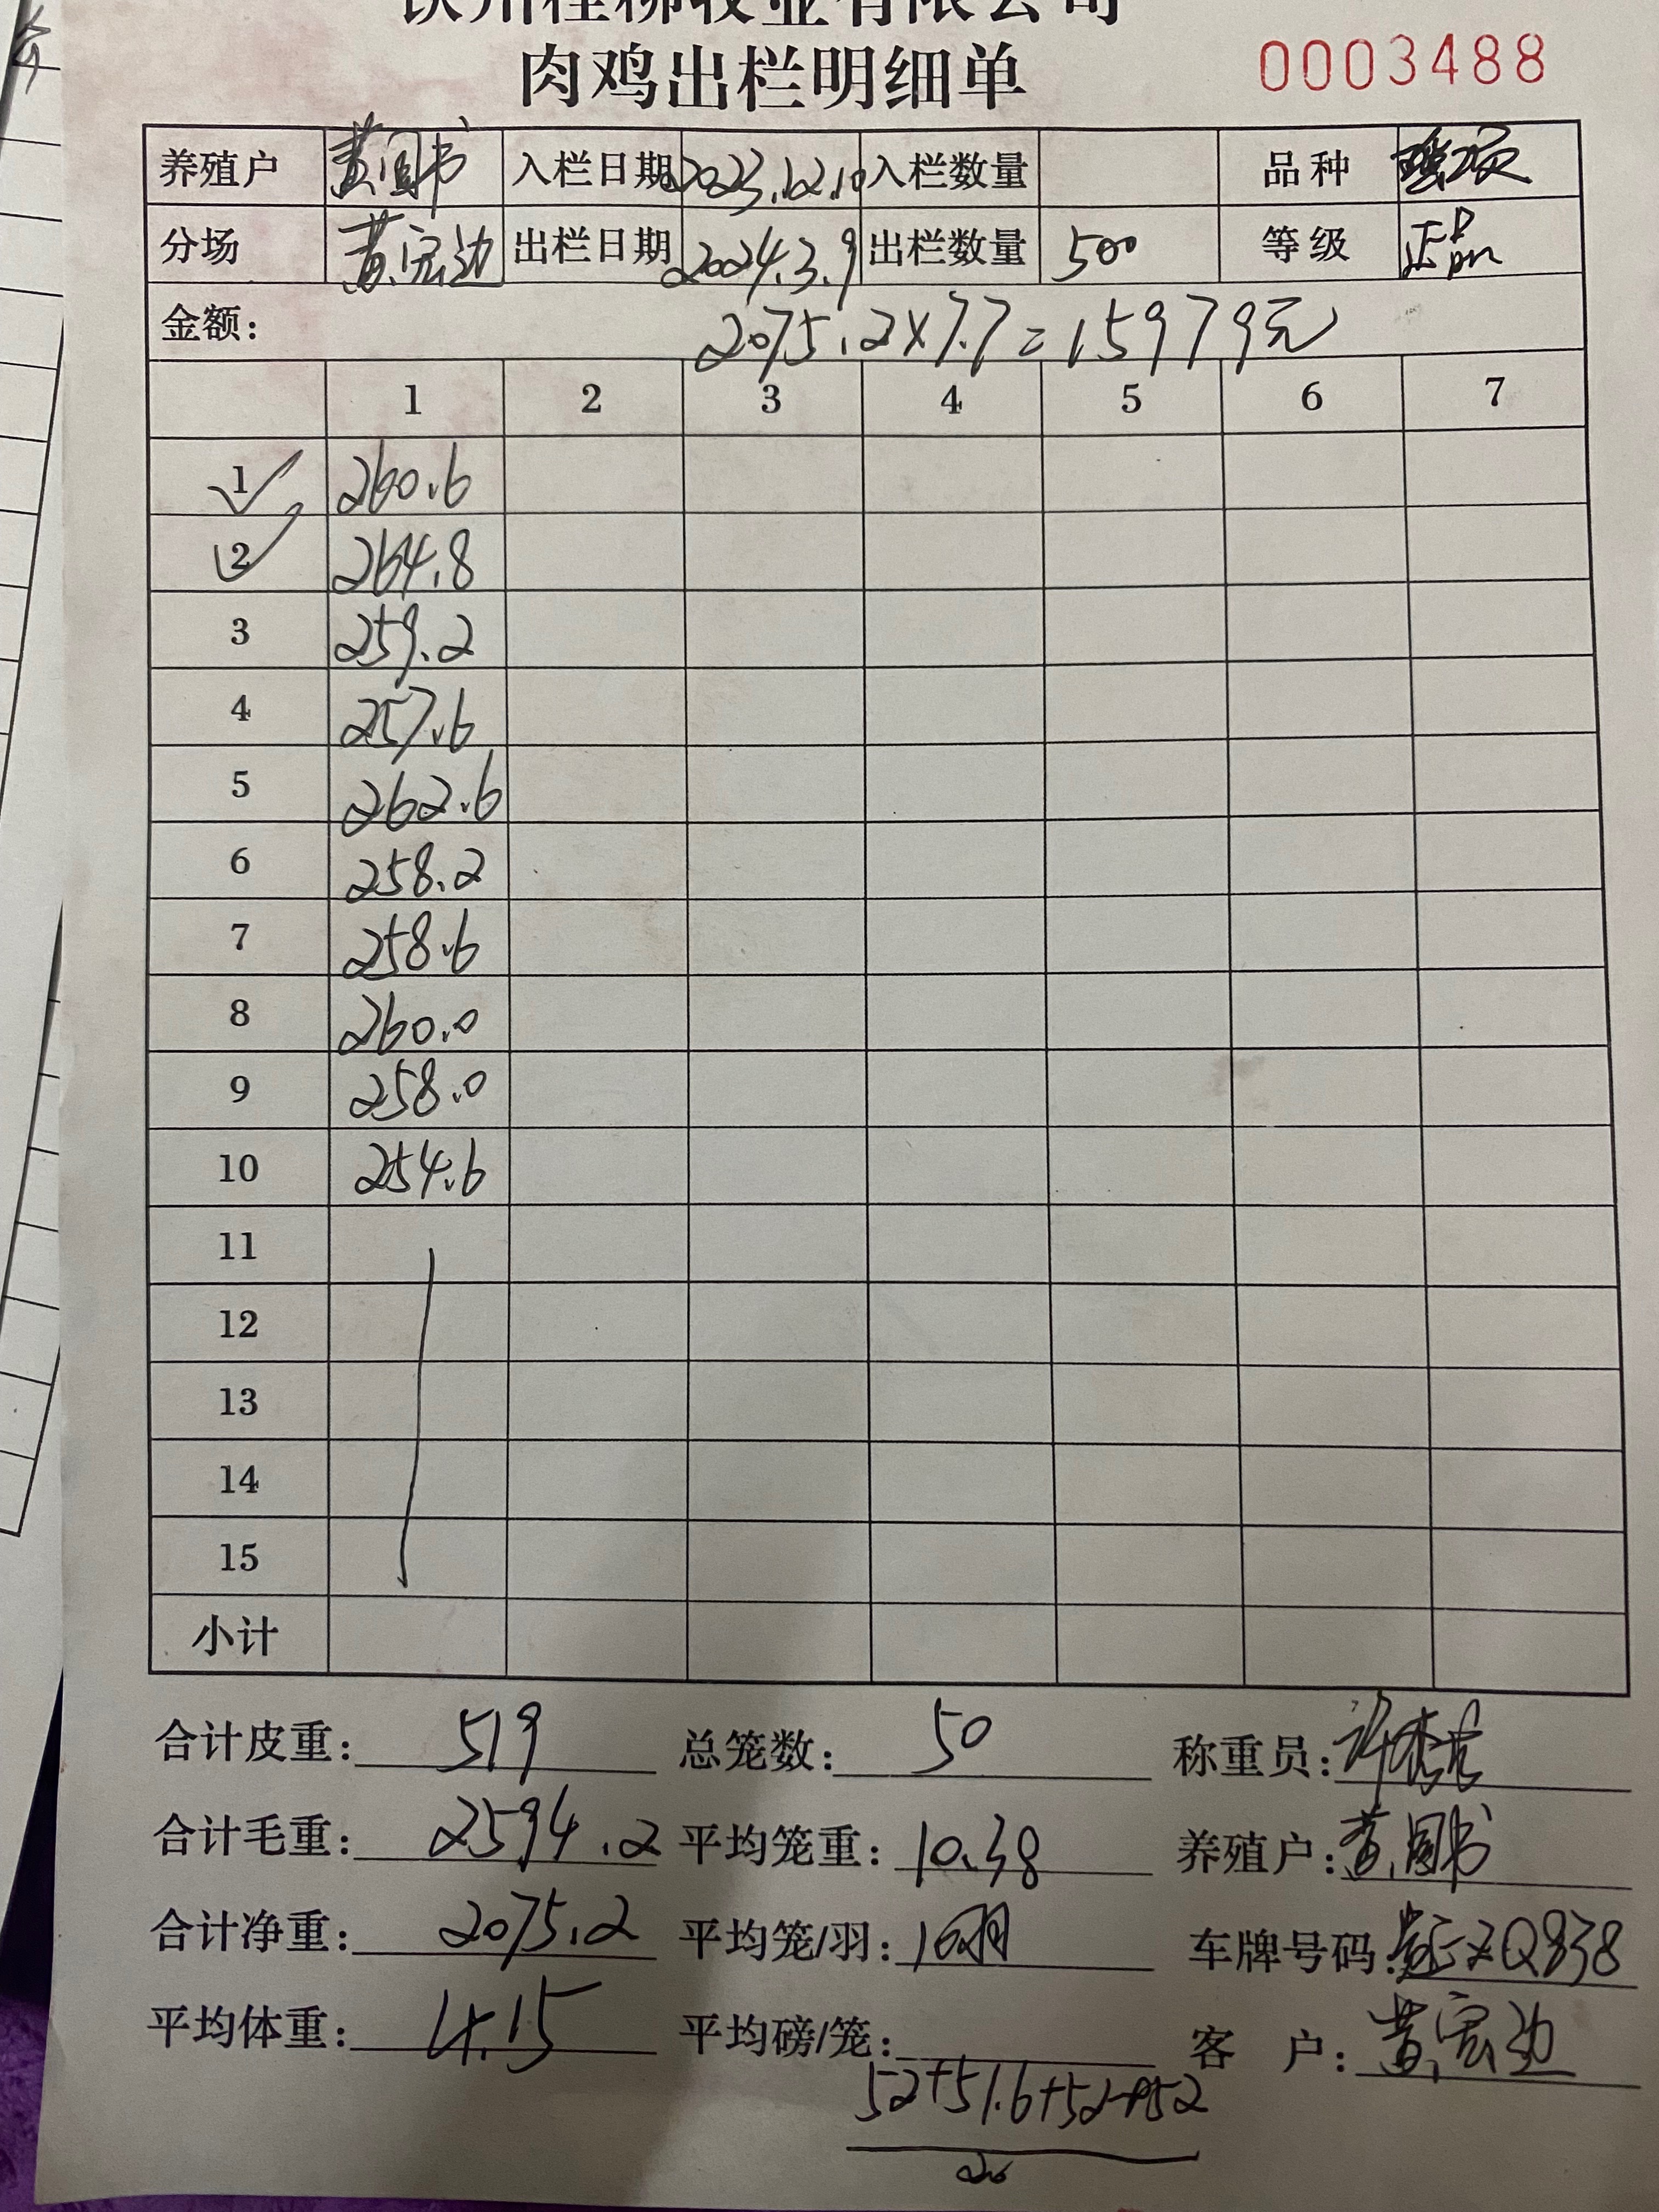 钦州桂柳牧业有限公司
肉鸡出栏明细单
0003488
养殖户 黄国书 入栏日期 2023.12.10 入栏数量 品种
分场 黄宏边 出栏日期 2024.3.9 出栏数量 500 等级 正品
金额: 2075.2×7.7=15979元
1 2 3 4 5 6 7
1 260.6
2 264.8
3 259.2
4 257.6
5 262.6
6 258.2
7 258.6
8 260.0
9 258.0
10 254.6
11
12
13
14
15
小计
合计皮重: 519 总笼数: 50 称重员:
合计毛重: 2594.2 平均笼重: 10.38 养殖户: 黄国书
合计净重: 2075.2 平均笼/羽: 10羽 车牌号码:
平均体重: 4.15 平均磅/笼: 客 户: 黄宏边
52+51.6+52+52
20